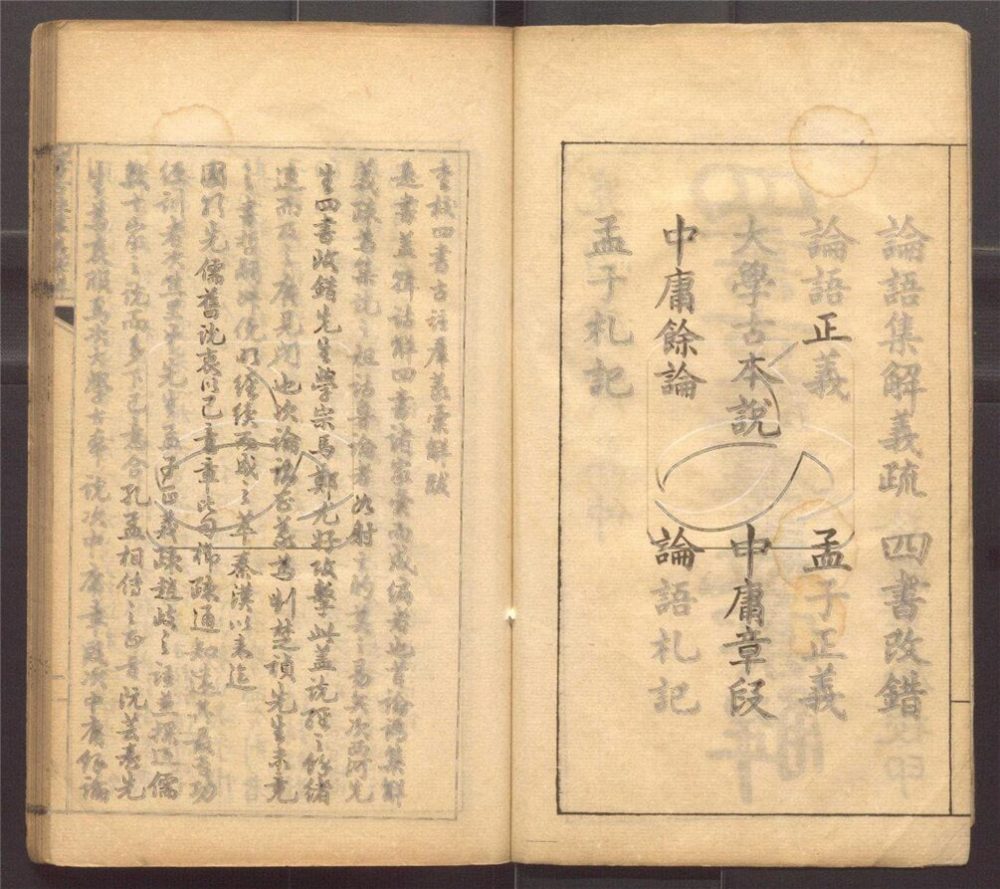 論語集解義疏 四書改錯
論語正義 孟子正義
大學古本說 中庸章段
中庸餘論 論語札記
孟子札記
書校四書古註羣義彙解跋
是書蓋輯詁解四書諸家彙而成編者也首論語集解
義疏為集說之祖詁導論者次射之的莫之易矣次西河先
生四書改錯先生學宗馬鄭尤好攻擊此蓋說經之餘緒
連而及之廣見聞也次論語正義為劉楚禎先生未竟
之書
國朝先儒舊說衷以己意章比句櫛疏通知遠其最有功
後訓者次焦里
孟子正義疏趙岐之註並撰近儒
數十家之說而多下己意合孔孟相傳之正旨阮芸臺先
生
大學古本說次中庸章段次中庸餘論